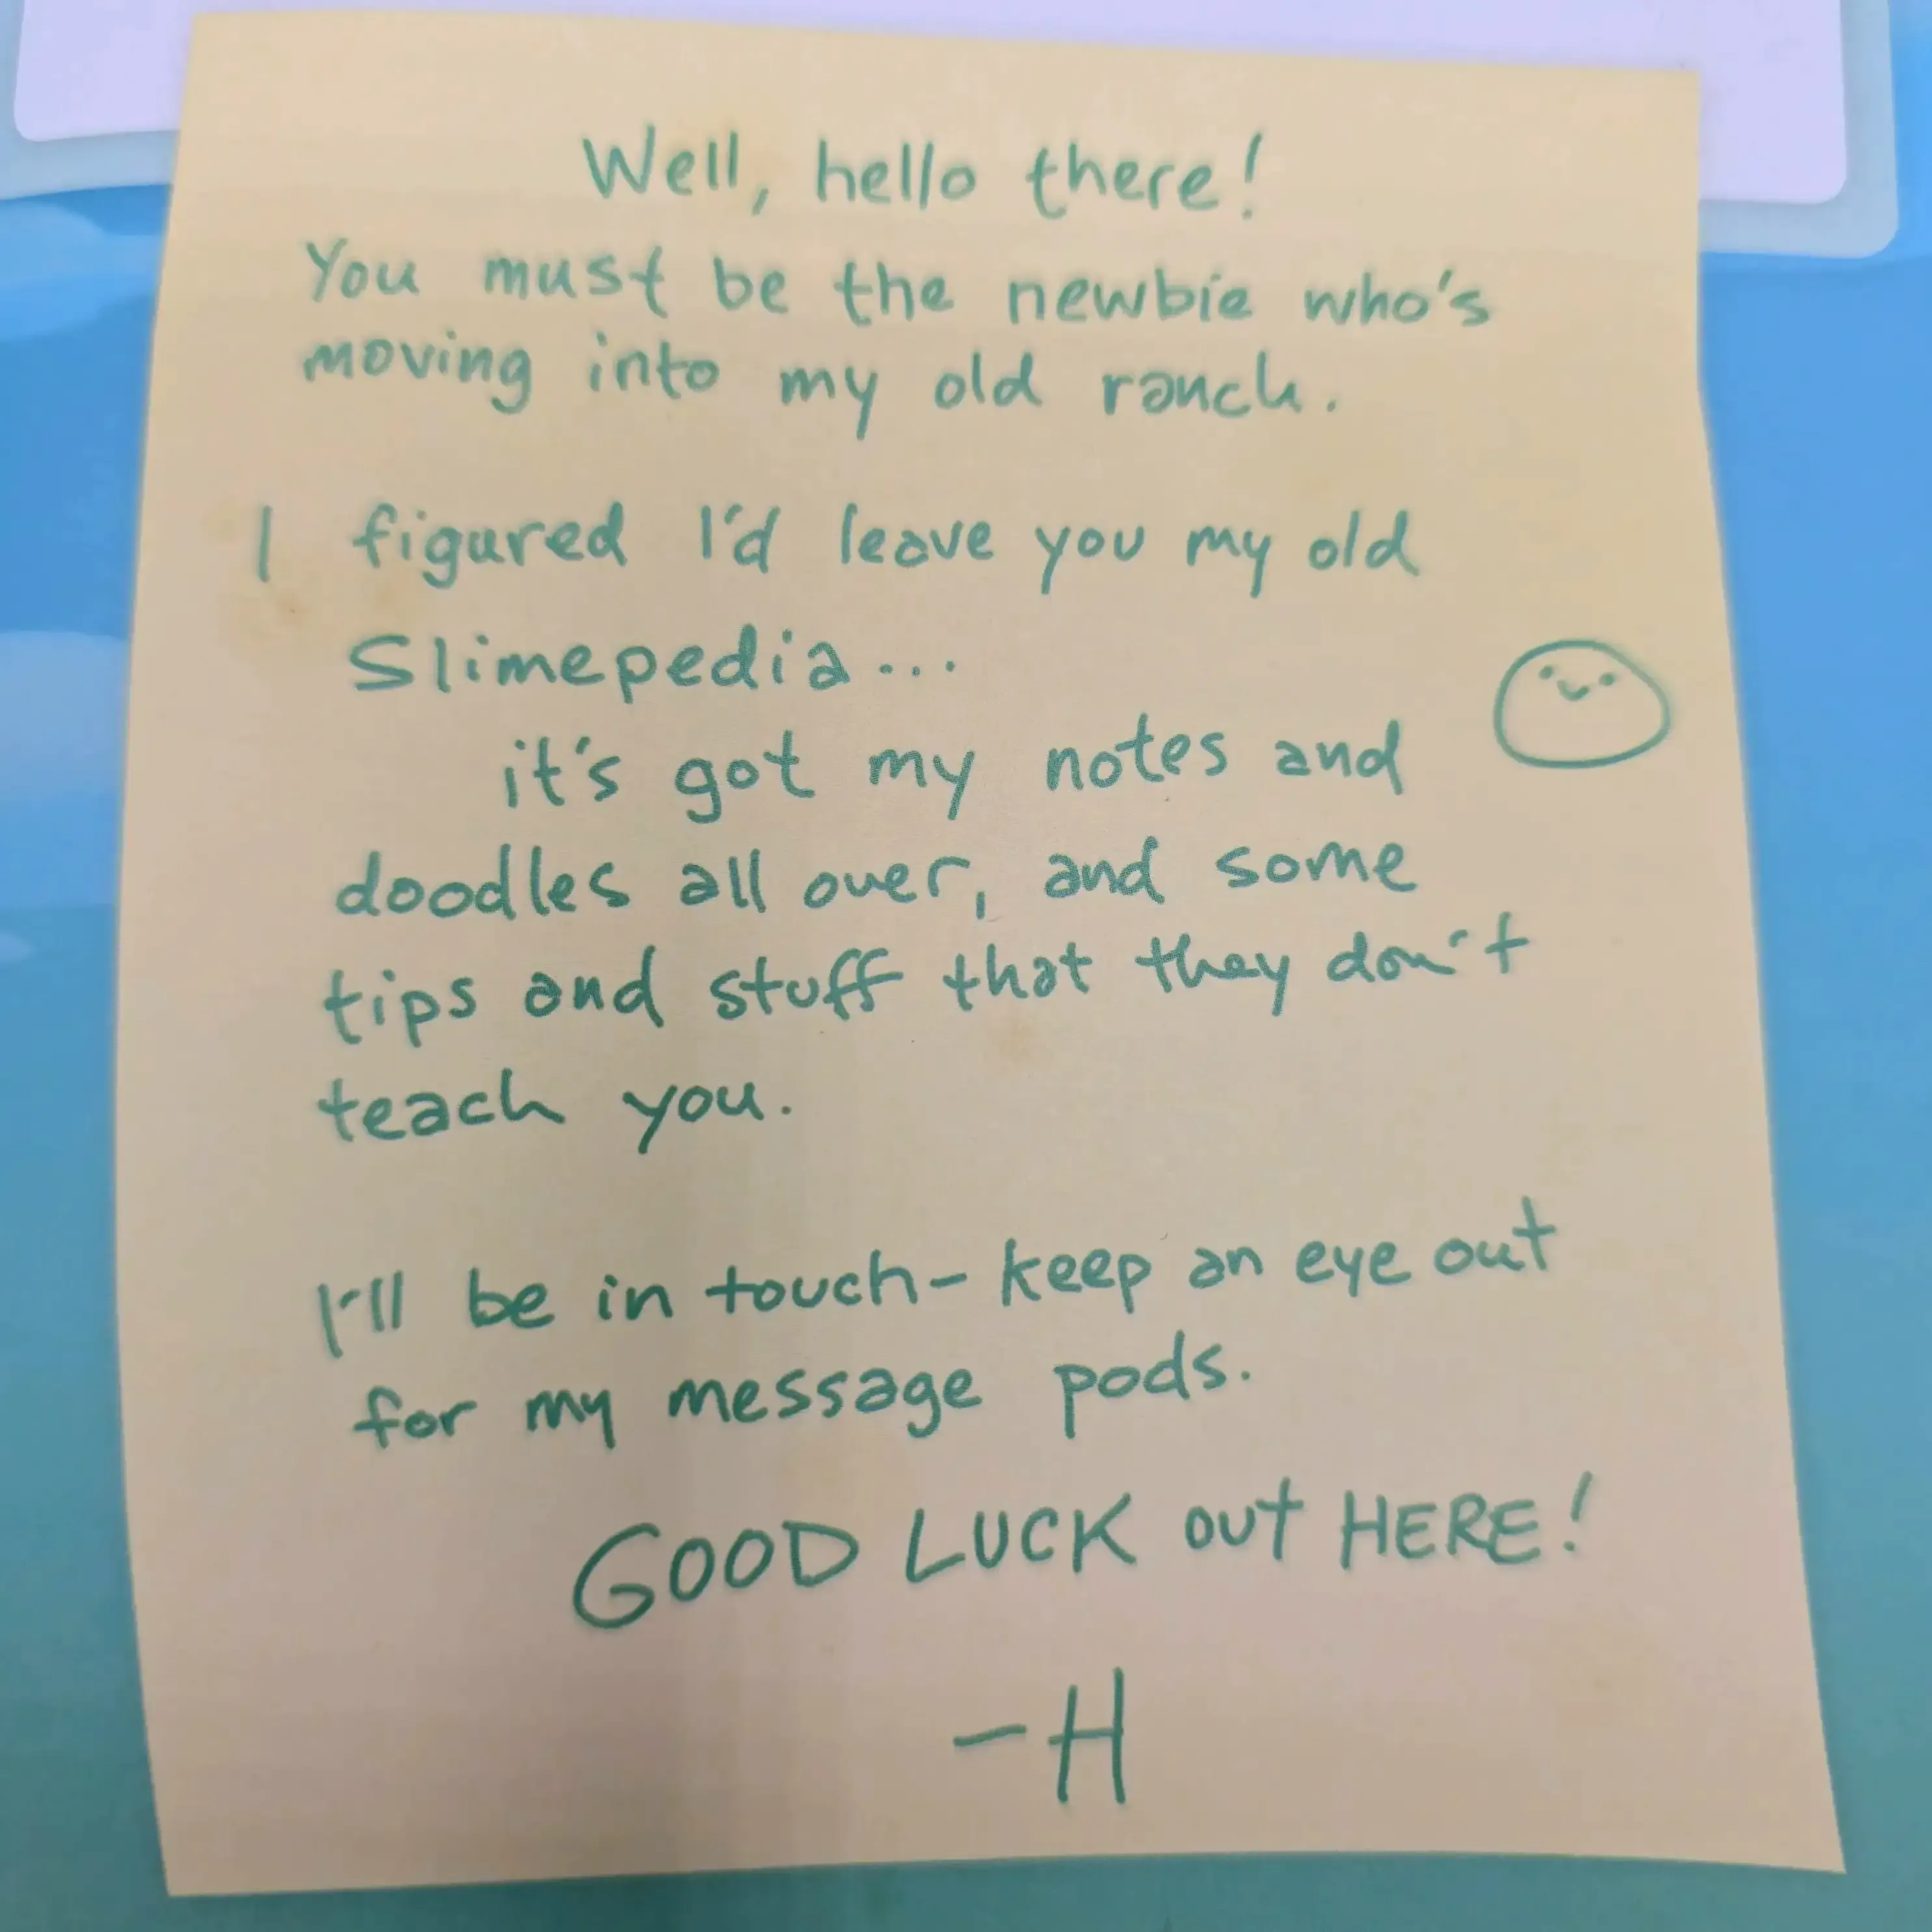 Well, hello there!
You must be the newbie who's
moving into my old ranch.
I figured I'd leave you my old
Slimepedia...
it's got my notes and
doodles all over, and some
tips and stuff that they don't
teach you.
I'll be in touch- keep an eye out
for my message pods.
GOOD LUCK OUT HERE!
-H